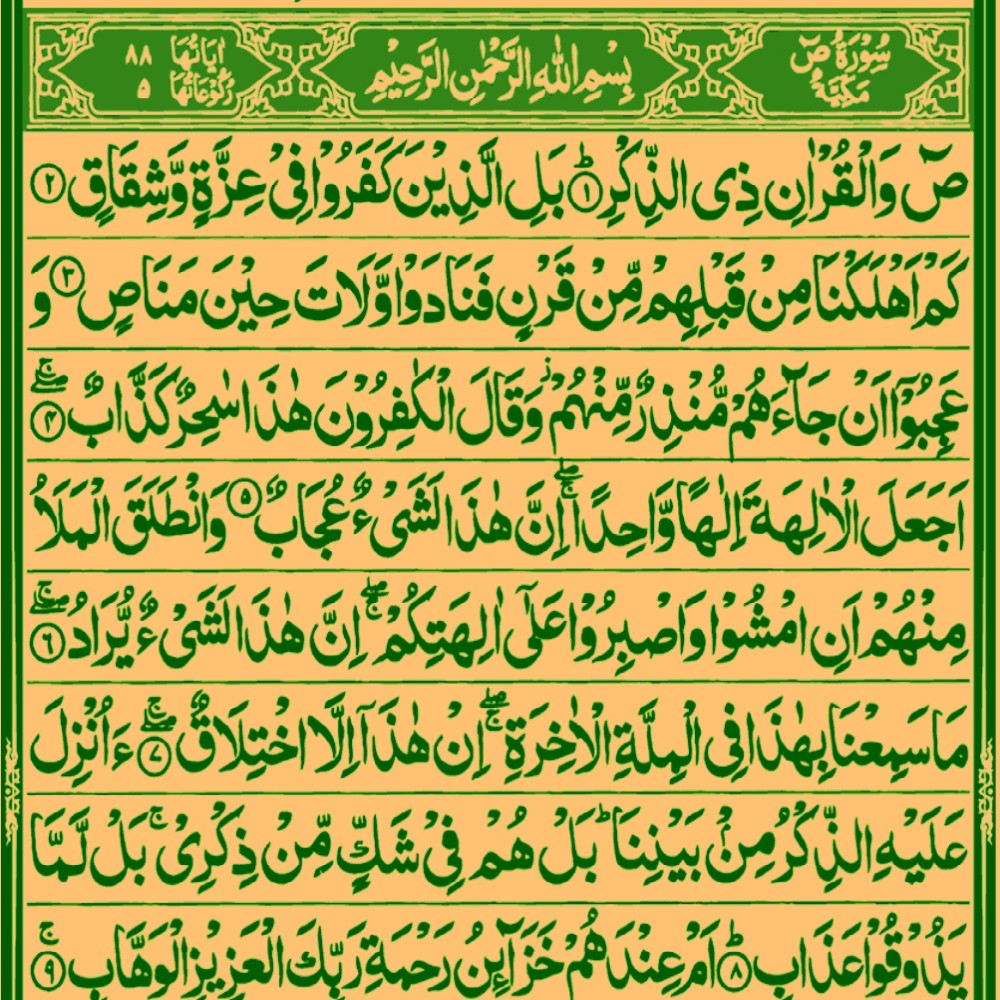 سُوْرَةُ صٓ مَكِّيَّةٌ بِسْمِ اللّٰهِ الرَّحْمٰنِ الرَّحِيْمِ اٰيَاتُهَا ٨٨ رُكُوْعَاتُهَا ٥
صٓ وَالْقُرْاٰنِ ذِى الذِّكْرِ ؕ ١ بَلِ الَّذِيْنَ كَفَرُوْا فِىْ عِزَّةٍ وَّشِقَاقٍ ٢
كَمْ اَهْلَكْنَا مِنْ قَبْلِهِمْ مِّنْ قَرْنٍ فَنَادَوْا وَّلَاتَ حِيْنَ مَنَاصٍ ٣ وَ
عَجِبُوْۤا اَنْ جَآءَهُمْ مُّنْذِرٌ مِّنْهُمْ ۫ وَقَالَ الْكٰفِرُوْنَ هٰذَا سٰحِرٌ كَذَّابٌ ۖۚ ٤
اَجَعَلَ الْاٰلِهَةَ اِلٰهًا وَّاحِدًا ۖۚ اِنَّ هٰذَا لَشَىْءٌ عُجَابٌ ٥ وَانْطَلَقَ الْمَلَاُ
مِنْهُمْ اَنِ امْشُوْا وَاصْبِرُوْا عَلٰٓى اٰلِهَتِكُمْ ۖۚ اِنَّ هٰذَا لَشَىْءٌ يُّرَادُ ۖۚ ٦
مَا سَمِعْنَا بِهٰذَا فِى الْمِلَّةِ الْاٰخِرَةِ ۖۚ اِنْ هٰذَاۤ اِلَّا اخْتِلَاقٌ ۖۚ ٧ ءَاُنْزِلَ
عَلَيْهِ الذِّكْرُ مِنْۢ بَيْنِنَا ؕ بَلْ هُمْ فِىْ شَكٍّ مِّنْ ذِكْرِىْ ۚ بَلْ لَّمَّا
يَذُوْقُوْا عَذَابِ ؕ ٨ اَمْ عِنْدَهُمْ خَزَآئِنُ رَحْمَةِ رَبِّكَ الْعَزِيْزِ الْوَهَّابِ ۚ ٩